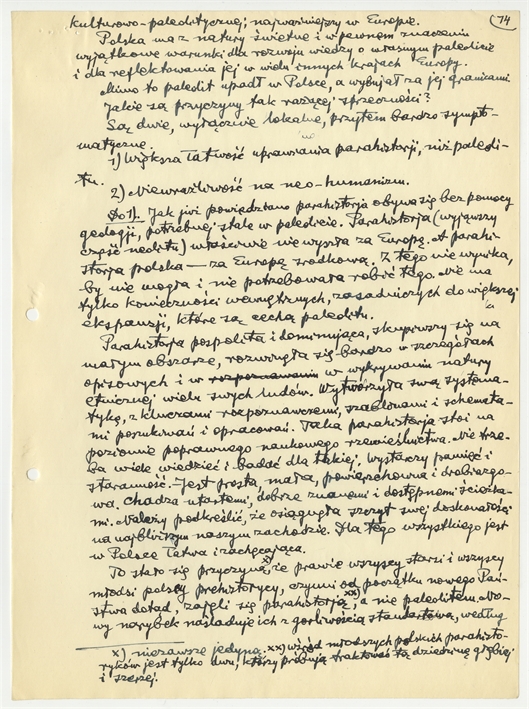 74
kulturowo-paleolitycznej; najważniejszy w Europie.
Polska ma z natury świetne i w pewnem znaczeniu
wyjątkowe warunki dla rozwoju wiedzy o własnym paleolicie
i dla reflektowania jej w wielu innych krajach Europy.
Mimo to paleolit upadł w Polsce, a wybujał za jej granicami.
Jakie są przyczyny tak rażącej sprzeczności?
Są dwie, wyłącznie lokalne, przytem bardzo sympto-
matyczne.
1) Większa łatwość uprawiania parahistorji, niż paleoli-
tu.
2) Niewrażliwość na neo-humanizm.
Do 1). Jak już powiedziano parahistorja obywa się bez pomocy
geologji, potrzebnej stale w paleolicie. Parahistorja (wyjąwszy
część neolitu) właściwie nie wyszła za Europę. A parahi-
storja polska — za Europę środkową. Z tego nie wynika,
by nie mogła i nie potrzebowała robić tego. Nie ma
tylko konieczności wewnętrznych, zasadniczych do większej
ekspansji, które są cechą paleolitu.
Parahistorja pospolita i dominująca, skupiwszy się na
małym obszarze, rozwinęła się bardzo w szczegółach
opisowych i w rozpoznawaniu w wykrywaniu natury
etnicznej wielu swych ludów. Wytworzyła swą systema-
tykę, z kluczami rozpoznawczemi, szablonami i schemata-
mi poszukiwań i opracowań. Taka parahistorja stoi na
poziomie poprawnego naukowego rzemieślnictwa. Nie trze-
ba wiele wiedzieć i badać dla takiej, wystarczy pamięć i
staranność. Jest prosta, mała, powierzchowna i drobiazgo-
wa. Chadza utartemi, dobrze znanemi i dostępnemi ścieżka-
mi. Należy podkreślić, że osiągnęła szczyt swej doskonałości
na najbliższym naszym zachodzie. Dla tego wszystkiego jest
w Polsce łatwa i zachęcająca.
To stało się przyczyną x), że prawie wszyscy starsi i wszyscy
młodsi polscy prehistorycy, czynni od początku nowego Pań-
stwa dotąd, zajęli się parahistorją xx), a nie paleolitem. No-
wy narybek naśladuje ich z gorliwością standartową, według
x) niezawsze jedyną. xx) wśród młodszych polskich parahisto-
ryków jest tylko dwu, którzy próbują traktować tą dziedzinę głębiej
i szerzej.